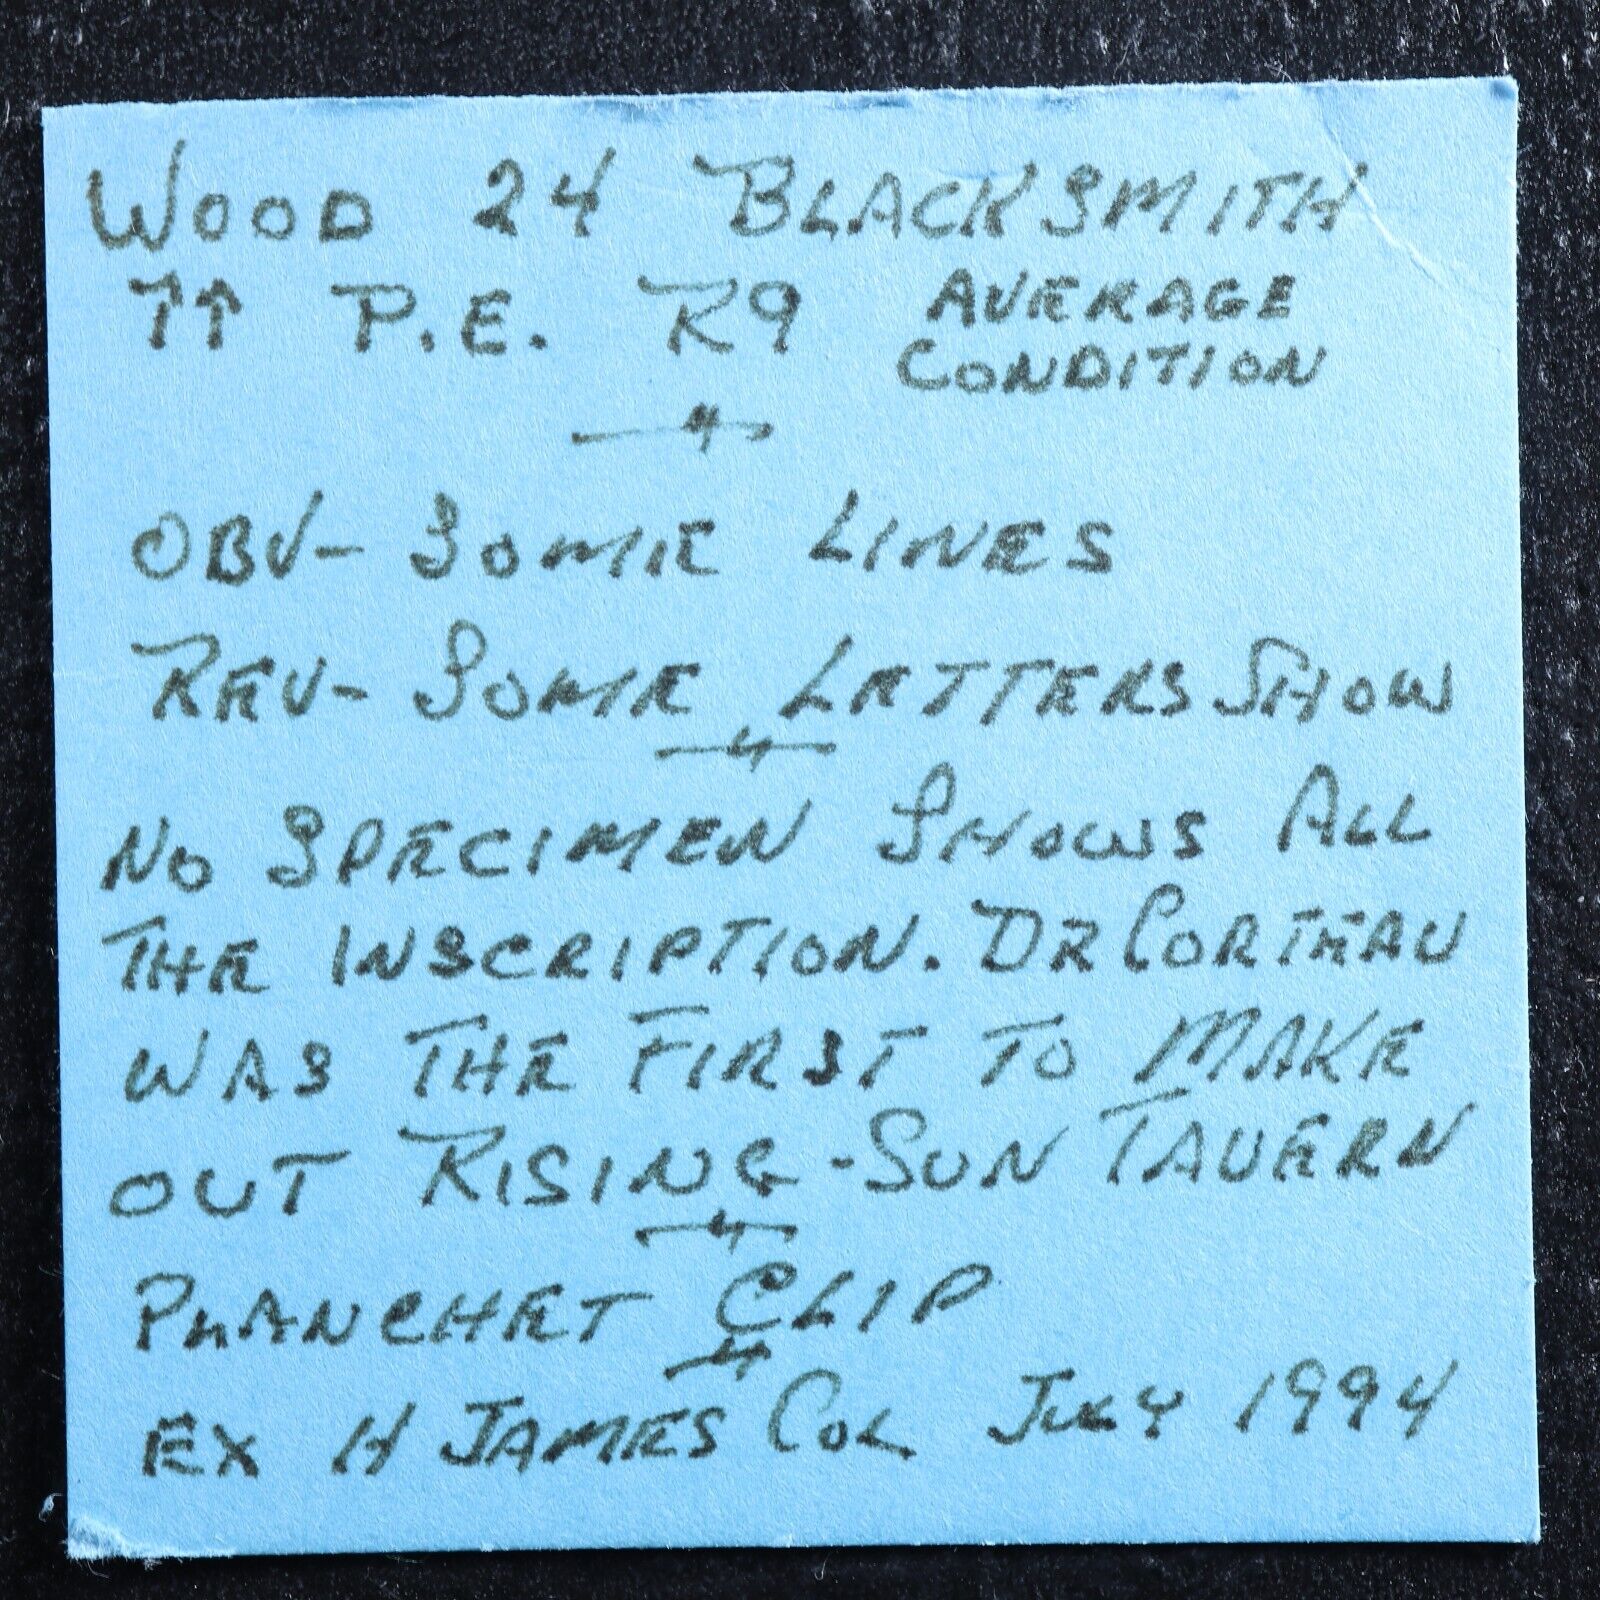 WOOD 24 BLACKSMITH
↑↑ P.E. R9 AVERAGE
CONDITION
OBV- SOME LINES
REV- SOME LETTERS SHOW
NO SPECIMEN SHOWS ALL
THE INSCRIPTION. DR CORTEAU
WAS THE FIRST TO MAKE
OUT RISING-SUN TAVERN
PLANCHET CLIP
EX H JAMES COL JULY 1994